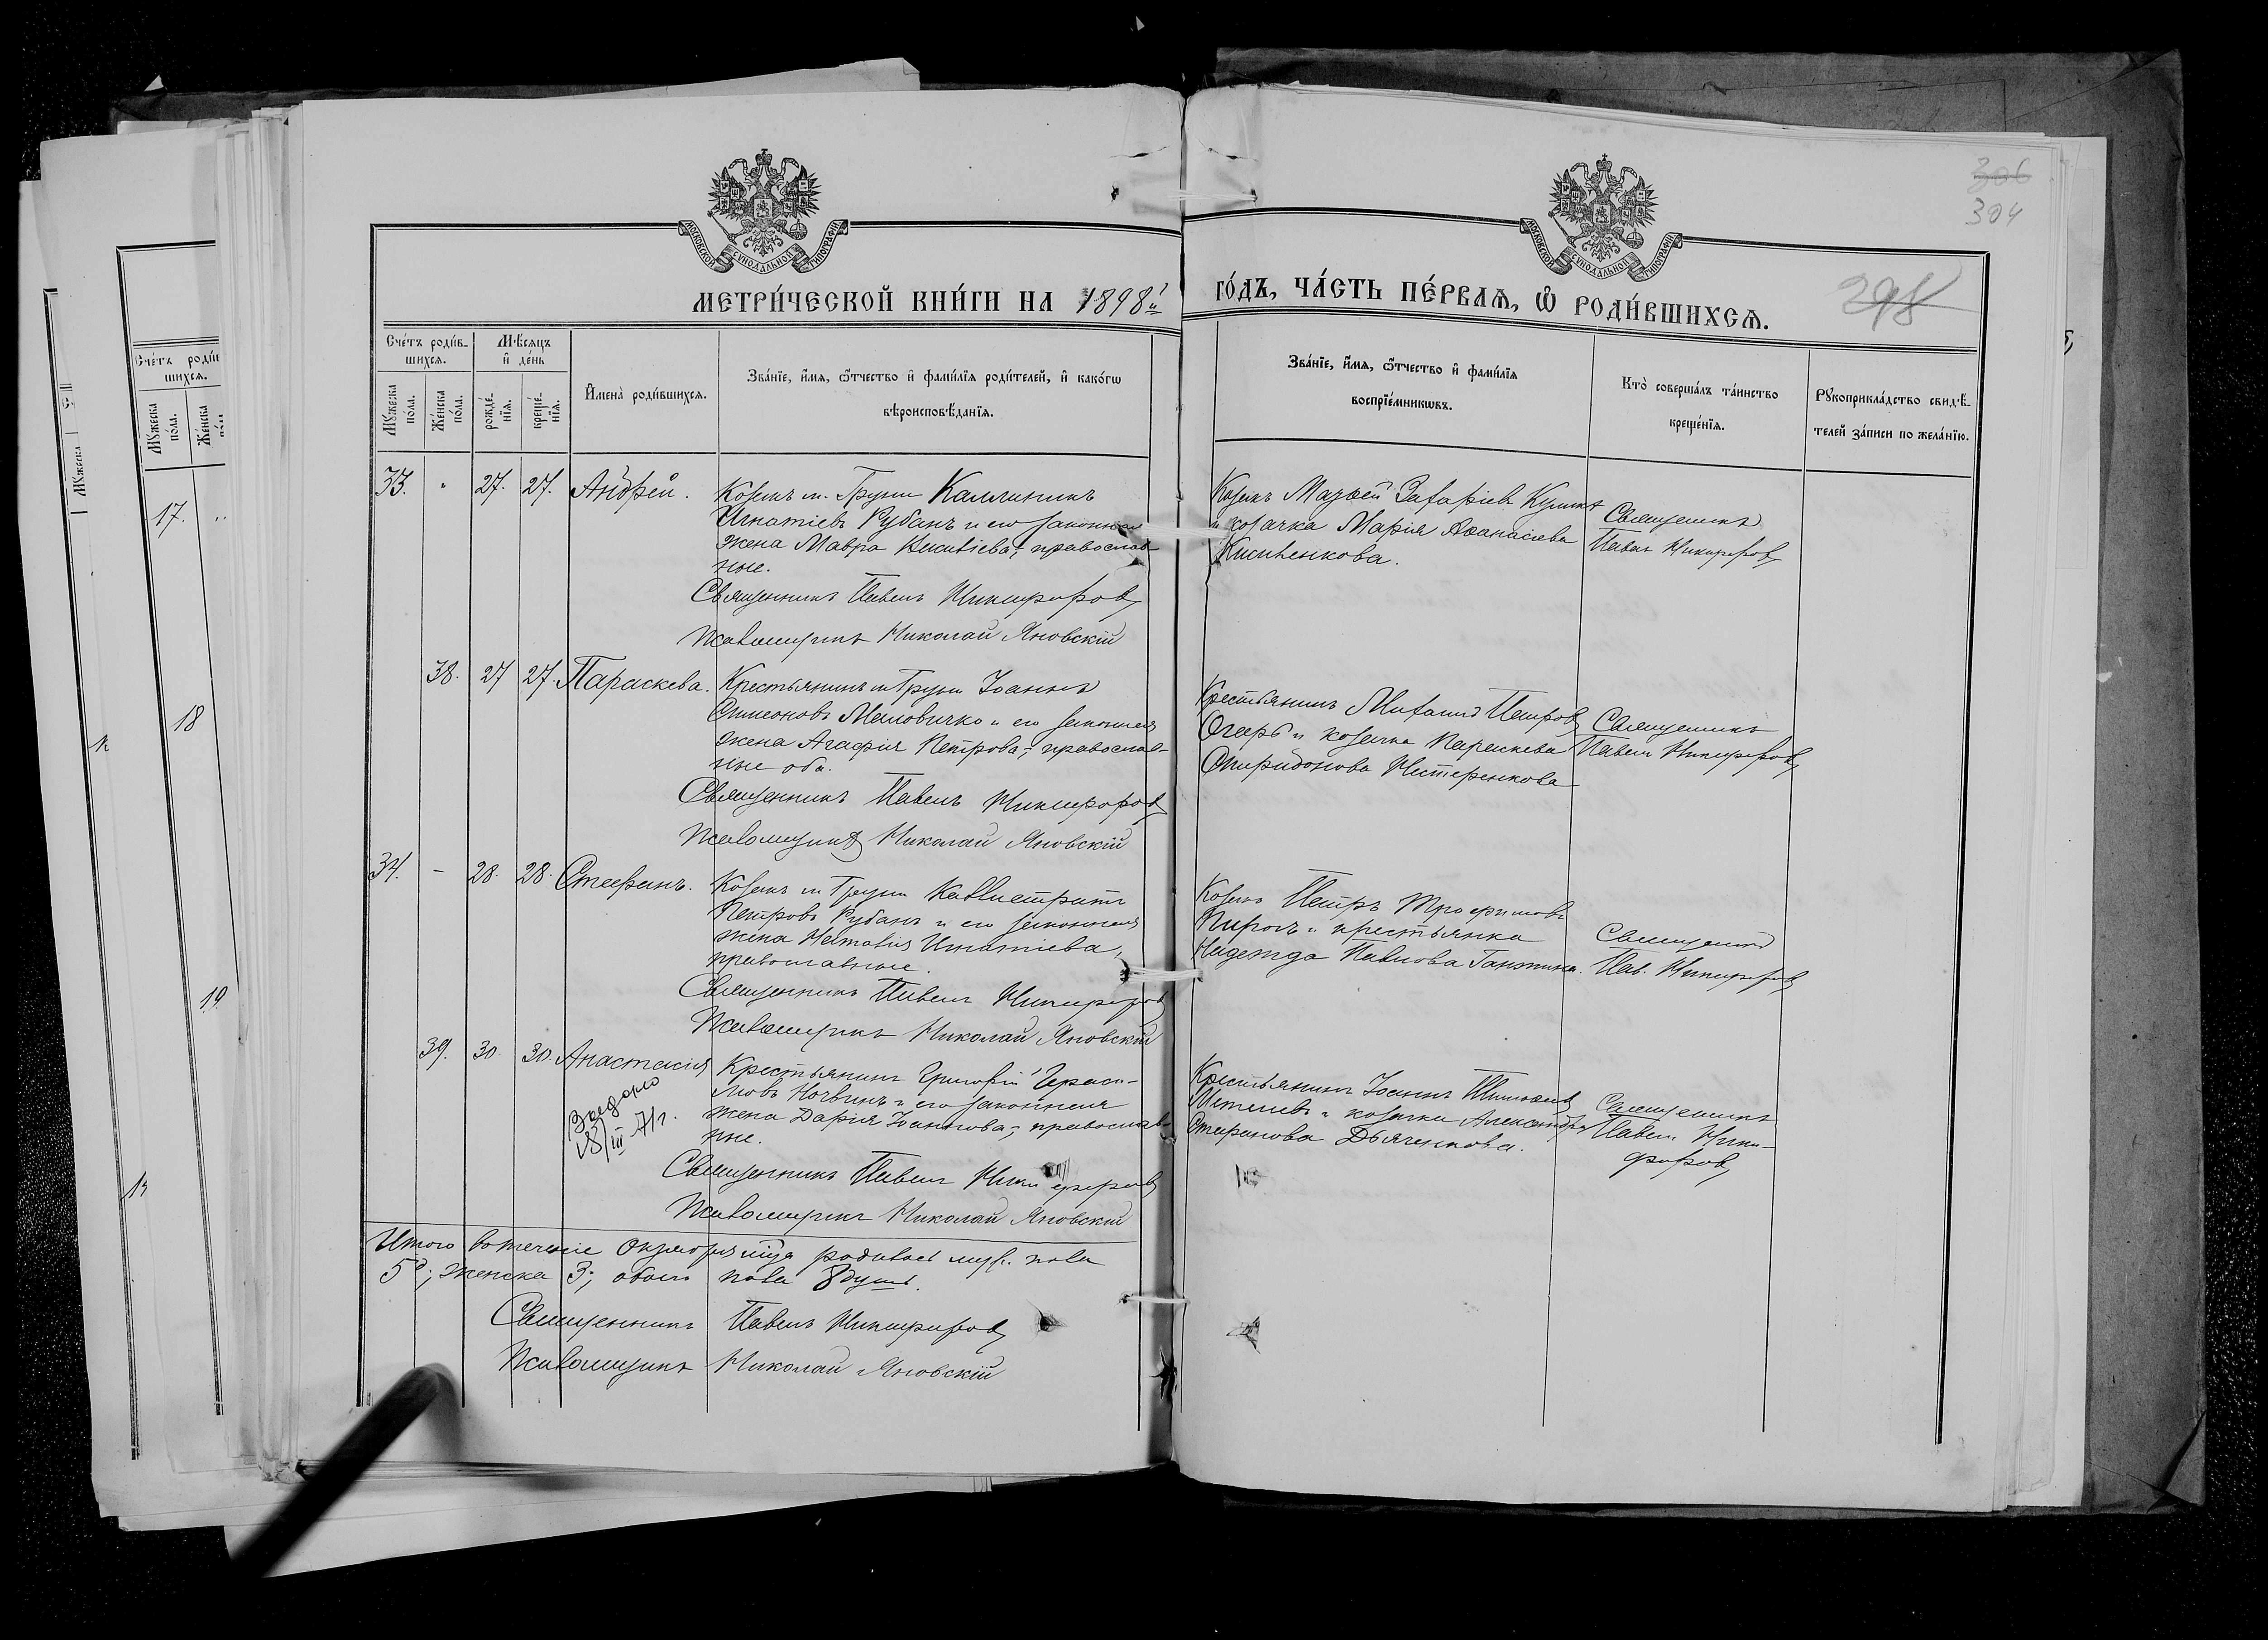 306
304
298
МОСКОВСКОЙ СѴНОДАЛЬНОЙ ТИПОГРАФІИ
МОСКОВСКОЙ СѴНОДАЛЬНОЙ ТИПОГРАФІИ
МЕТРИ́ЧЕСКОЙ КНИ́ГИ НА 1898й
ГО́ДЪ, ЧА́СТЬ ПЕ́РВАѦ, Ѽ РОДИ́ВШИХСѦ.
Сче́тъ роди́в-
шихсѧ.
Мꙋ́жеска по́ла.
Же́нска по́ла.
Мѣ́сѧцъ
и҆ де́нь
рожде́-
нїѧ.
креще́-
нїѧ.
И҆мена̀ роди́вшихсѧ.
Зва́нїе, и҆́мѧ, ѻ҆́тчество и҆ фами́лїѧ роди́телей, и҆ како́гѡ
вѣроисповѣ́данїѧ.
Зва́нїе, и҆́мѧ, ѻ҆́тчество и҆ фами́лїѧ
воспрїе́мникѡвъ.
Кто̀ соверша́лъ та́инство
креще́нїѧ.
Рꙋкоприкла́дство свидѣ́-
телей за́писи по жела́нїю.
33. " 27. 27. Андрей.
Козакъ м. Груни Каллиникъ
Игнатіевъ Рубанъ и его законная
жена Мавра православ-
ные.
Священникъ Павелъ Никифоровъ
Псаломщикъ Николай Яновскій
Козакъ Захаріевъ
и козачка Марія Аѳанасіева
Священникъ
Павелъ Никифоровъ
38. 27 27. Параскева.
Крестьянинъ м. Груни Іоаннъ
Симеоновъ Маловичко и его законная
жена Агафія Петрова, православ-
ные оба.
Священникъ Павелъ Никифоровъ
Псаломщикъ Николай Яновскій
Крестьянинъ Михаилъ Петровъ
Огарь и козачка Параскева
Спиридонова Нестеренкова
Священникъ
Павелъ Никифоровъ
34. - 28. 28. Стефанъ.
Козакъ м. Груни Каллистратъ
Петровъ Рубанъ и его законная
жена Наталія Игнатіева,
православные.
Священникъ Павелъ Никифоровъ
Псаломщикъ Николай Яновскій
Козакъ Петръ Трофимовъ
Пирогъ и крестьянка
Надежда Павлова
Священникъ
Пав. Никифоровъ
39. 30. 30. Анастасія
18/III-71г.
Крестьянинъ Григорій Гераси-
мовъ и его законная
жена Дарія Іоаннова, православ-
ные.
Священникъ Павелъ Никифоровъ
Псаломщикъ Николай Яновскій
Крестьянинъ Іоаннъ
и козачка Александра
Стефанова Дьяченкова.
Священникъ
Павелъ Ники-
форовъ
Итого въ теченіе Октября м-ца родилось муж. пола
5; женска 3; обоего пола 8 душъ.
Священникъ Павелъ Никифоровъ
Псаломщикъ Николай Яновскій
Сче́тъ роди́в
шихсѧ.
Мꙋ́жеска по́ла.
Же́нска
17. "
18
19.